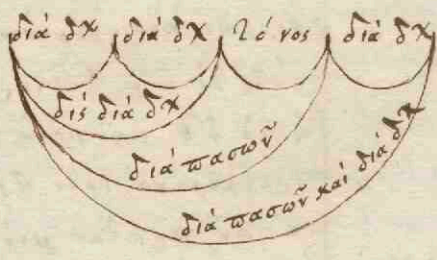 διά δχ διά δχ τόνος διά δχ
δίς διά δχ
διά πασων̃
διά πασων̃ καί διά δχ